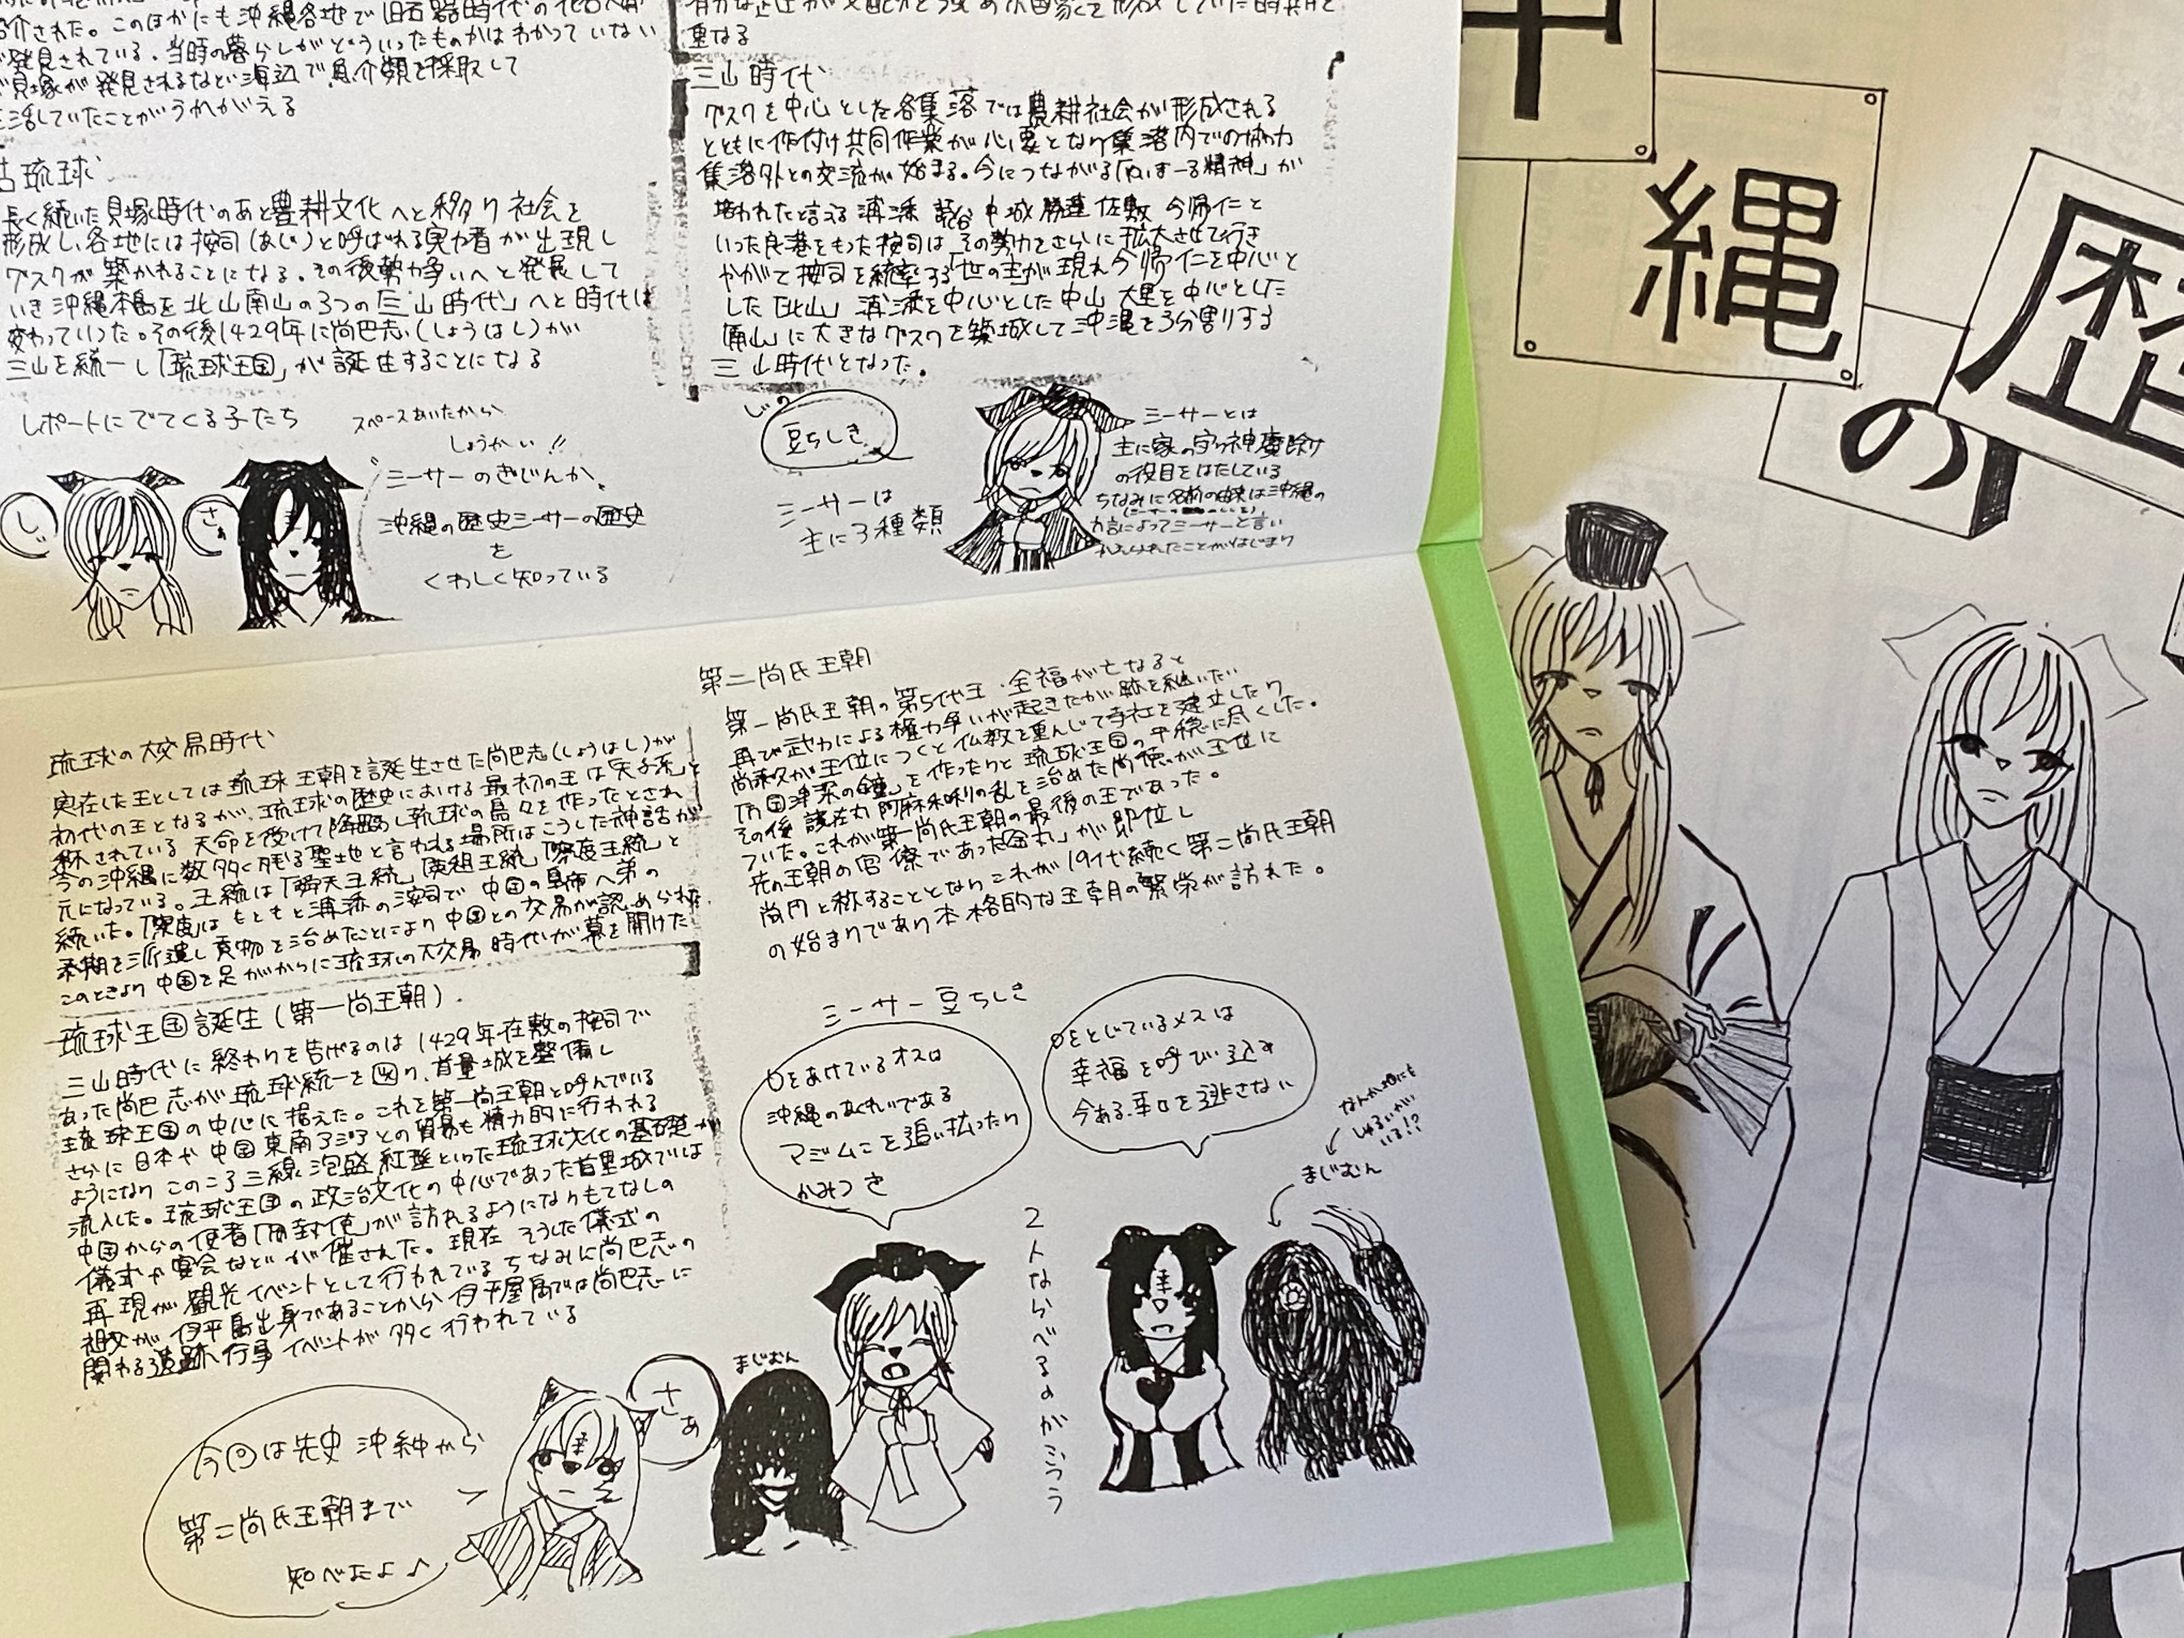 介された。このほかにも沖縄各地で旧石器時代の
発見されている。当時の暮らしがどういったものかはわかっていない
貝塚が発見されるなど海辺で魚介類を採取して
活していたことがうかがえる
古琉球
長く続いた貝塚時代のあと農耕文化へと移り社会を
形成し、各地には按司(あじ)と呼ばれる実力者が出現し
グスクが築かれることになる。その後勢力争いへと発展して
いき沖縄本島を北山南山の3つの「三山時代」へと時代は
変わっていった。その後1429年に尚巴志(しょうはし)が
三山を統一し「琉球王国」が誕生することになる
レポートにでてくる子たち
スペースあいたから
しょうかい!!
シーサーのぎじんか
沖縄の歴史シーサーの歴史
を
くわしく知っている
じ
さぁ
重なる
三山時代
グスクを中心とした各集落では農耕社会が形成される
とともに作付け共同作業が必要となり集落内での協力
集落外との交流が始まる。今につながる「ゆいまーる精神」が
培われたと言える 浦添 読谷 中城 勝連 佐敷 今帰仁と
いった良港をもった按司は その勢力をさらに拡大させて行き
やがて按司を統率する「世の主」が現れ今帰仁を中心と
した「北山」浦添を中心とした中山 大里を中心とした
「南山」に大きなグスクを築城して沖縄を3分割りする
三山時代となった。
豆ちしき
シーサーは
主に3種類
シーサーとは
主に家の守り神魔除け
の役目をはたしている
ちなみに名前の由来は沖縄の
方言によってシーサーと言い
琉球の大交易時代
実在した王としては琉球王朝を誕生させた尚巴志(しょうはし)が
初代の王となるが、琉球の歴史における最初の王は「天子系」と
称されている 天命を受けて降臨し琉球の島々を作ったとされ
今の沖縄に数多く残る聖地と言われる場所はこうした神話が
元になっている。王統は「舜天王統」「英祖王統」「察度王統」と
続いた。「察度」はもともと浦添の按司で 中国の皇帝へ弟の
泰期を派遣し貢物を治めたことにより中国との交易が認められた
このときより中国を足がかりに琉球の大交易時代が幕を開けた
琉球王国誕生(第一尚王朝)
三山時代に終わりを告げるのは1429年佐敷の按司で
あった尚巴志が琉球統一を図り、首里城を整備し
琉球王国の中心に据えた。これを第一尚王朝と呼んでいる
さらに日本や中国東南アジアとの貿易も精力的に行われる
ようになり このころ三線 泡盛 紅型といった琉球文化の基礎が
流入した。琉球王国の政治文化の中心であった首里城では
中国からの使者「冊封使」が訪れるようになりもてなしの
儀式や宴会などが催された。現在 そうした儀式の
再現が観光イベントとして行われている ちなみに尚巴志の
祖父が伊平島出身であることから伊平屋島では尚巴志に
関わる遺跡、行事 イベントが多く行われている
第二尚氏王朝
第一尚氏王朝の第5代王・金福が亡なると
再び武力による権力争いが起きたが 跡を継いだ
尚泰久が王位につくと仏教を重んじて寺社を建立したり
「万国津梁の鐘」を作ったりと琉球王国の平穏に尽くした。
その後 護佐丸 阿麻和利の乱を治めた尚徳が王位に
ついた。これが第一尚氏王朝の最後の王であった。
先の王朝の官僚であった「金丸」が即位し
尚円と称することとなりこれが19代続く第二尚氏王朝
の始まりであり本格的な王朝の繁栄が訪れた。
シーサー豆ちしき
口をあけているオスは
沖縄のあくれいである
マジムンを追い払ったり
かみつき
口をとじているメスは
幸福を呼びい込み
今ある幸口を逃さない
なんか他にも
しゅるいが
いる!?
まじむん
2人ならべるのがふつう
まじむん
さぁ
今回は先史沖縄から
第二尚氏王朝まで
知べたよ♪
沖
縄
の
歴